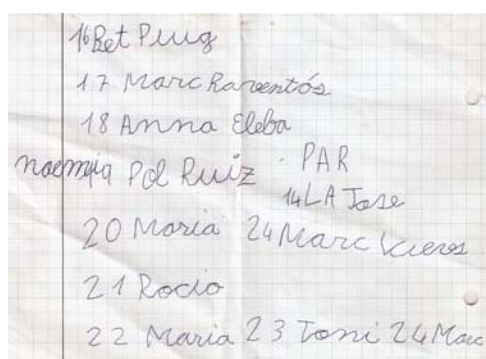 16 Bet Puig
17 Marc Raventós
18 Anna Eleba
noemia Pol Ruiz · PAR
14 LA Jose
20 Maria 24 Marc
21 Rocio
22 Maria 23 Toni 24 Marc